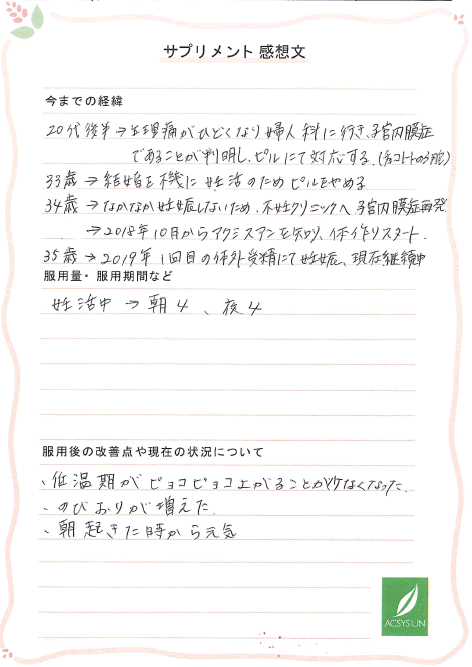 サプリメント 感想文
今までの経緯
20代後半→生理痛がひどくなり婦人科に行き、子宮内膜症
であることが判明し、ピルにて対応する。(チョコレートのう胞)
33歳→結婚を機に妊活のためピルをやめる
34歳→なかなか妊娠しないため、不妊クリニックへ 子宮内膜症再発
→2018年10月からアクシスアンを知り、体作りスタート.
35歳→2019年1回目の体外受精にて妊娠、現在継続中
服用量・服用期間など
妊活中→朝4、夜4
服用後の改善点や現在の状況について
、低温期がピョコピョコ上がることが少なくなった.
、のびおりが増えた
、朝起きた時から元気
ACSYSUN